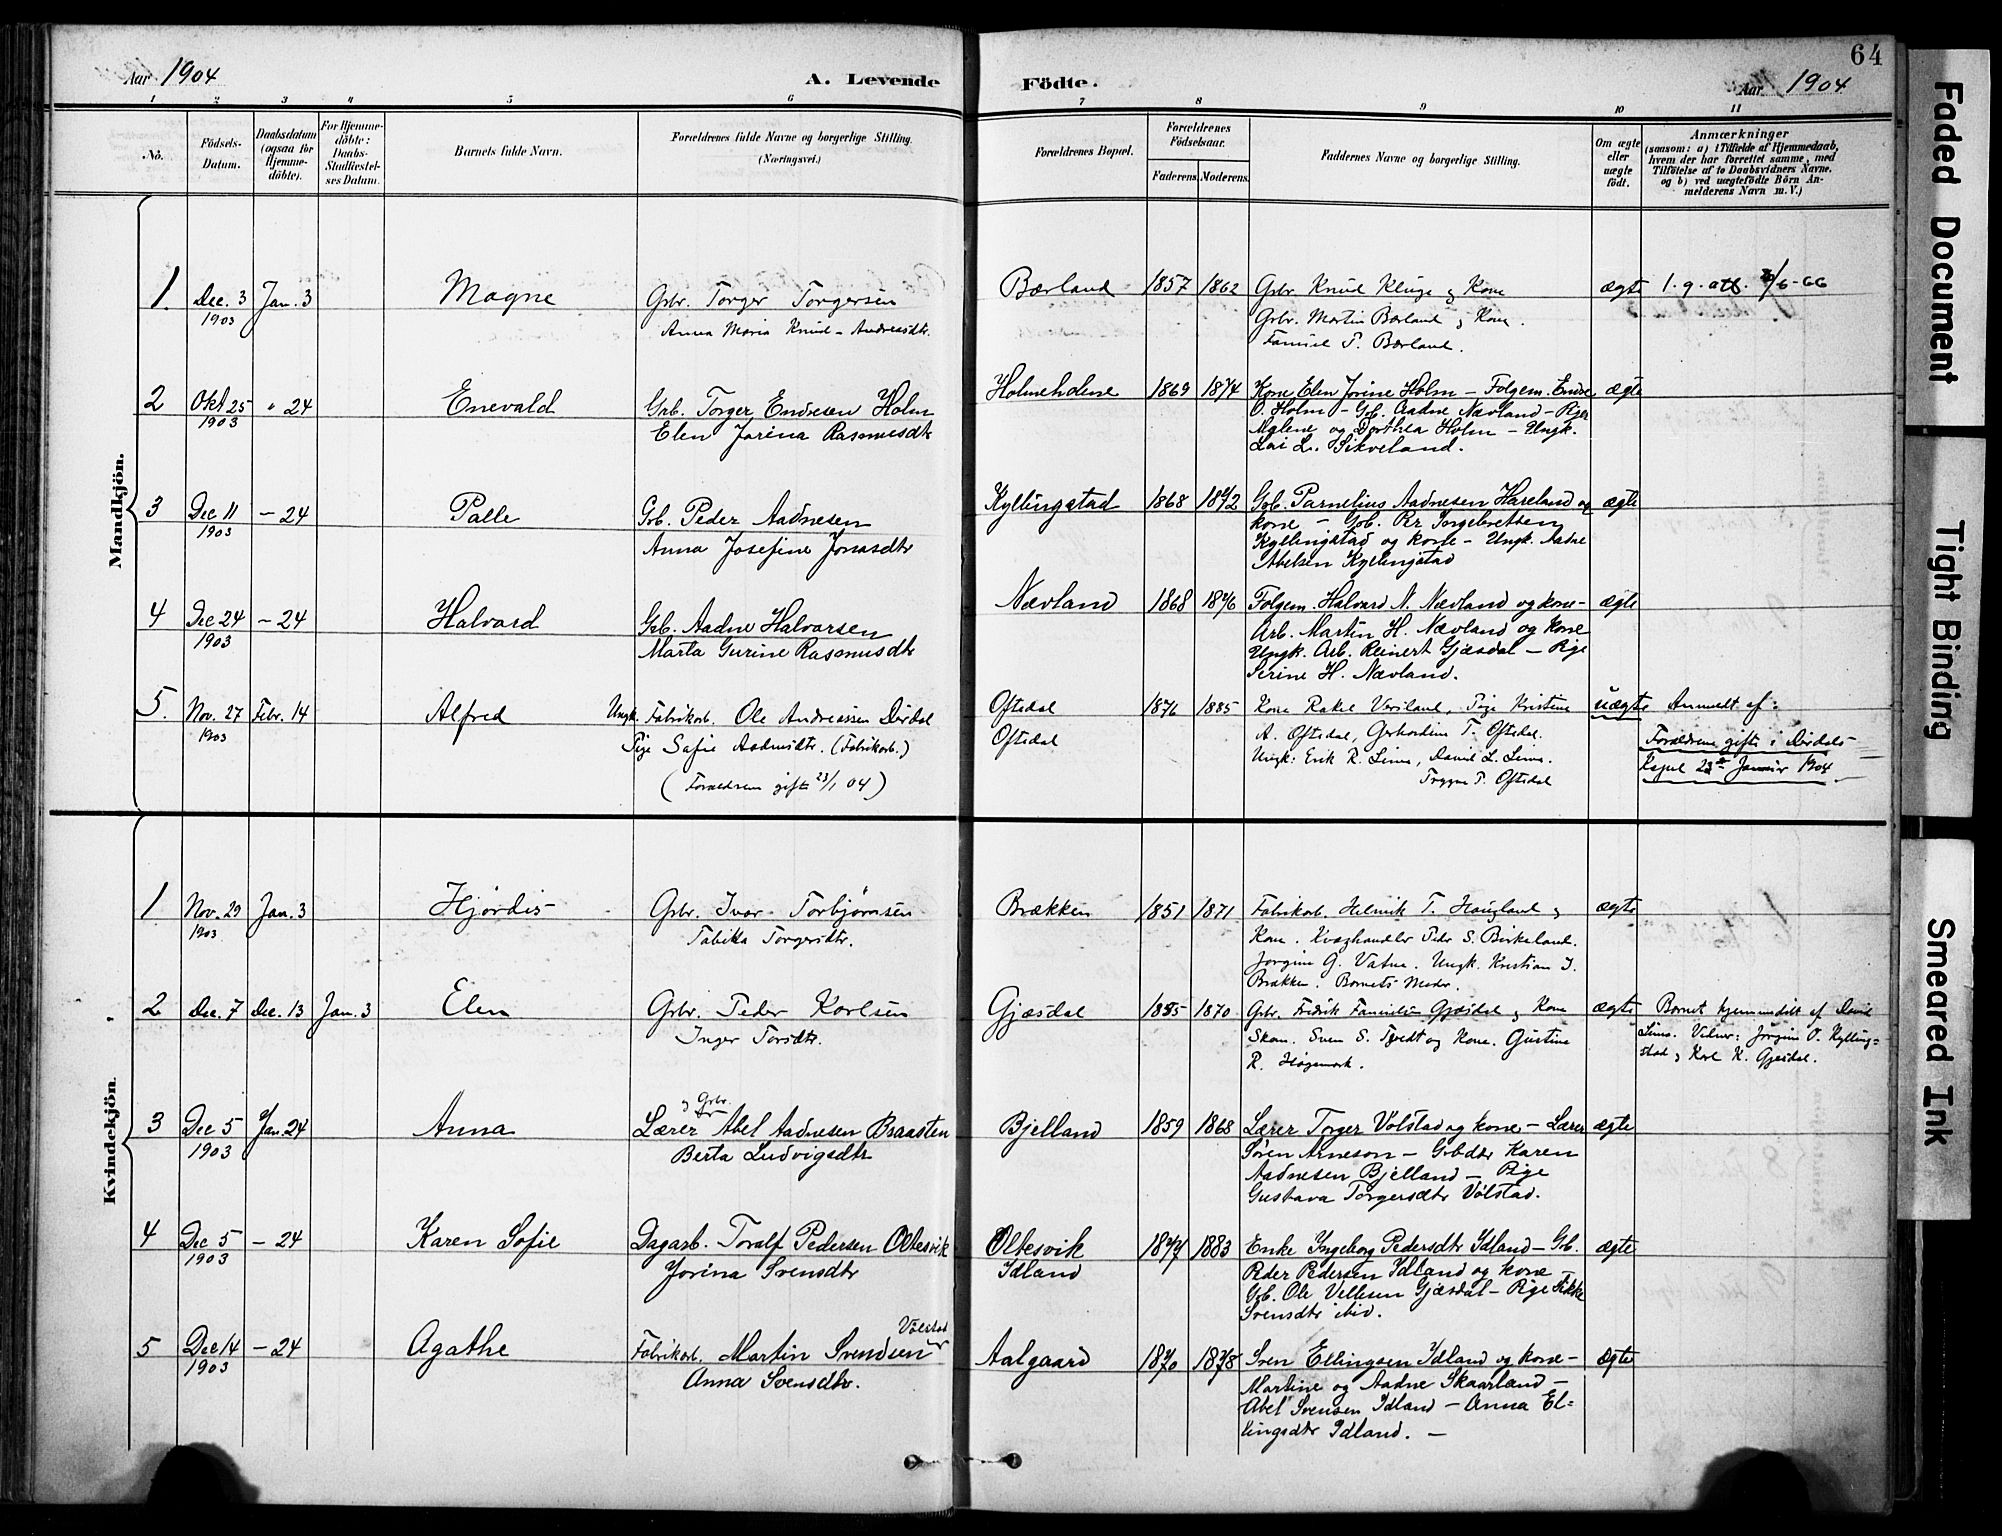 64
Aar 1904
A. Levende
Födte.
Aar 1904
1 2 3 4 5 6 7 8 9 10 11
No.
Födsels-
Datum.
Daabsdatum
(ogsaa for
Hjemme-
döbte).
For Hjemme-
döbte:
Daabs-
Stadfæstel-
ses Datum.
Barnets fulde Navn.
Forældrenes fulde Navne og borgerlige Stilling.
(Næringsvei.)
Forældrenes Bopæl.
Forældrenes
Födselsaar.
Faderens. Moderens.
Faddernes Navne og borgerlige Stilling.
Om ægte
eller
uægte
födt.
Anmærkninger
(saasom: a) i Tilfælde af Hjemmedaab,
hvem der har forrettet samme, med
Tilföielse af to Daabsvidners Navne,
og b) ved uægtefödte Börn An-
melderens Navn m. V.)
Mandkjön.
1. Dec. 3 Jan. 3 Magne Grbr. Torger Torgersen Bærland 1857 1862 Grbr. Knud Kluge og Kone ægte 1. g. att. /6-66
1903 Anna Maria Knud-Andreasdtr. Grbr. Martin Bærland og Kone.
T. Bærland.
2 Okt 25 " 24 Enevald Grb. Torger Endresen Holm Holmeholene 1869 1874 Kone Elen Jorine Holm – Folgem. Endre ægte
1903 Elen Jorina Rasmusdtr O. Holm – Grb. Aadne Nævland – Pige
Malene og Dorthea Holm – Ungk.
L. Sikveland.
3 Dec 11 – 24 Palle Grb. Peder Aadnesen Kyllingstad 1868 1872 Grb. Parnelius Aadnesen Haveland og ægte
1903 Anna Josefine Jonasdtr kone – Grb. Pr Ingebretsen
Kyllingstad og kone – Ungk. Aadne
Abelsen Kyllingstad
4 Dec 24 – 24 Halvard Grb. Aadne Halvarsen Nævland 1868 1876 Folgem. Halvard N. Nævland og kone – ægte
1903 Marta Gurine Rasmusdtr Arb. Martin H. Nævland og kone
Ungk. Arb. Reinert Gjæsdal – Pige
Serine H. Nævland.
5. Nov. 27 Febr. 14 Alfred Ungk. Fabrikarb. Ole Andreassen Dirdal Oftedal 1876 1885 Kone Rakel Versland, Pige Kristine uægte Anmeldt af:
1903 Pige Sofie Aadnesdtr. (Fabrikarb.) Oftedal A. Oftedal, Gerhardine T. Oftedal. Forældrene gifte i Dirdals
Ungk: Erik R. Lima, David L. Lima. Kapel 23de Januar 1904
(Forældrene gifte 23/1 04) Trygve T. Oftedal
Kvindekjön.
1 Nov. 29 Jan. 3 Hjørdis Grbr. Ivar Torbjørnsen Brækken 1851 1871 Fabrikarb. Helmik T. Haugland og ægte
1903 Tabitta Torgersdtr. Kone. Kvæghandler Peder S. Birkeland.
Jorgine G. Vatne. Ungk. Kristian I.
Brækken. Barnets Moder.
2 Dec. 7 Dec. 13 Jan. 3 Elen Grbr. Peder Karlsen Gjæsdal 1855 1870 Grbr. Fredrik Gjæsdal og Kone ægte Barnet hjemmedøbt af David
Inger Torsdtr. Skom. Sven S. Tvedt og Kone. Gustine Lima. Vidner: Jørgine O. Kylling=
R. Høgemork. stad og Karl K. Gjesdal.
3 Dec 5 Jan. 24 Anna Lærer og Grbr. Abel Aadnesen Braasten Bjelland 1859 1868 Lærer Torger Volstad og kone – Lærer ægte
1903 Berta Ludvigsdtr Sören Arneson – Grbdtr Karen
Aadnesen Bjelland – Pige
Gustava Torgersdtr Volstad.
4 Dec 5 – 24 Karen Sofie Dagarb. Toralf Pedersen Oltesvik Oltesvik 1877 1883 Enke Ingeborg Pedersdtr Idland – Grb. ægte
1903 Jorina Svensdtr Idland Peder Pedersen Idland og kone –
Grb. Ole Vellesen Gjæsdal – Pige Sikke
Svensdtr ibid.
5 Dec 14 – 24 Agathe Fabrikarb. Martin Svendsen Volstad Aalgaard 1870 1878 Sven Ellingsen Idland og kone – ægte
1903 Anna Svensdtr. Martine og Aadne Skaarland –
Abel Svensen Idland – Anna El=
lingsdtr Idland. –
Faded Document
Tight Binding
Smeared Ink